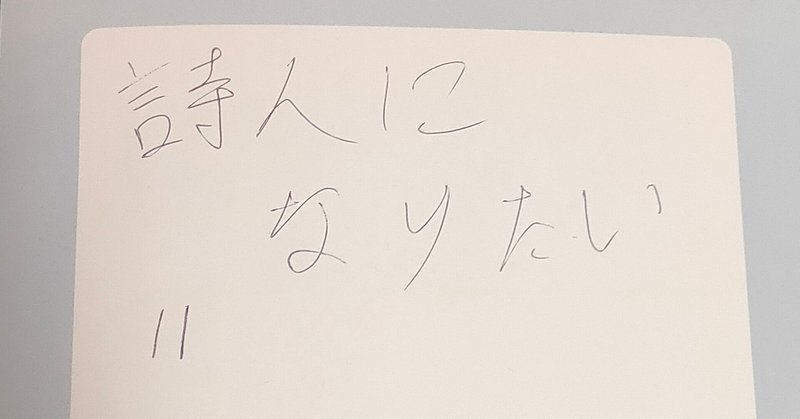 詩人に
なりたい
||